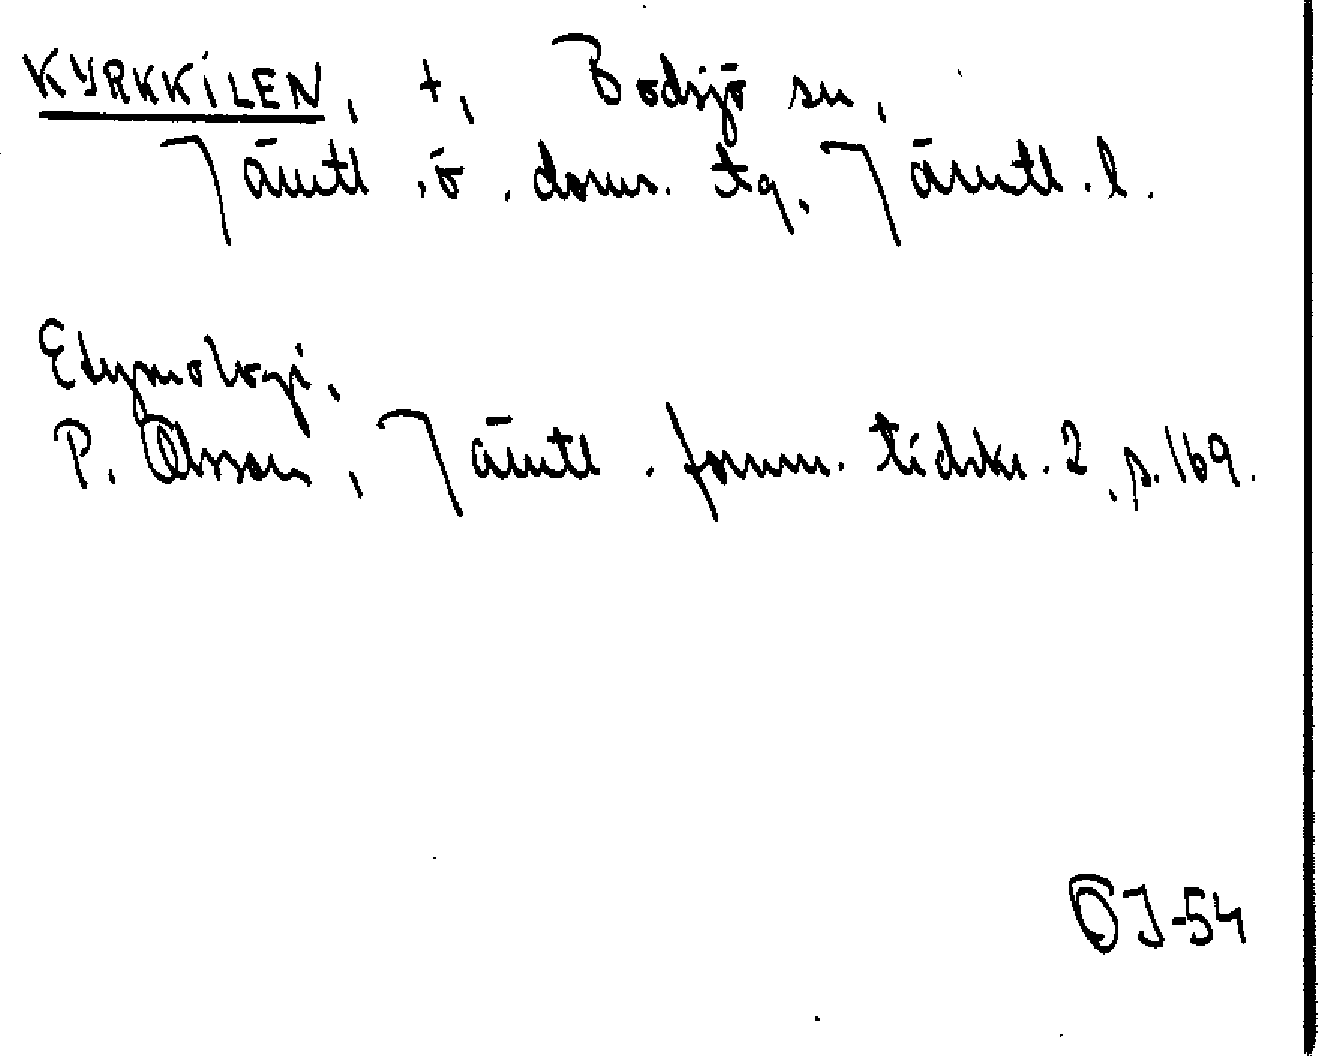 KYRKKILEN, +, Bodsjö sn,
Jämtl. ö. doms. tg, Jämtl. l.
Etymologi,
P. Olsson, Jämtl. fornm. tidskr. 2, s. 169.
ÖJ-54